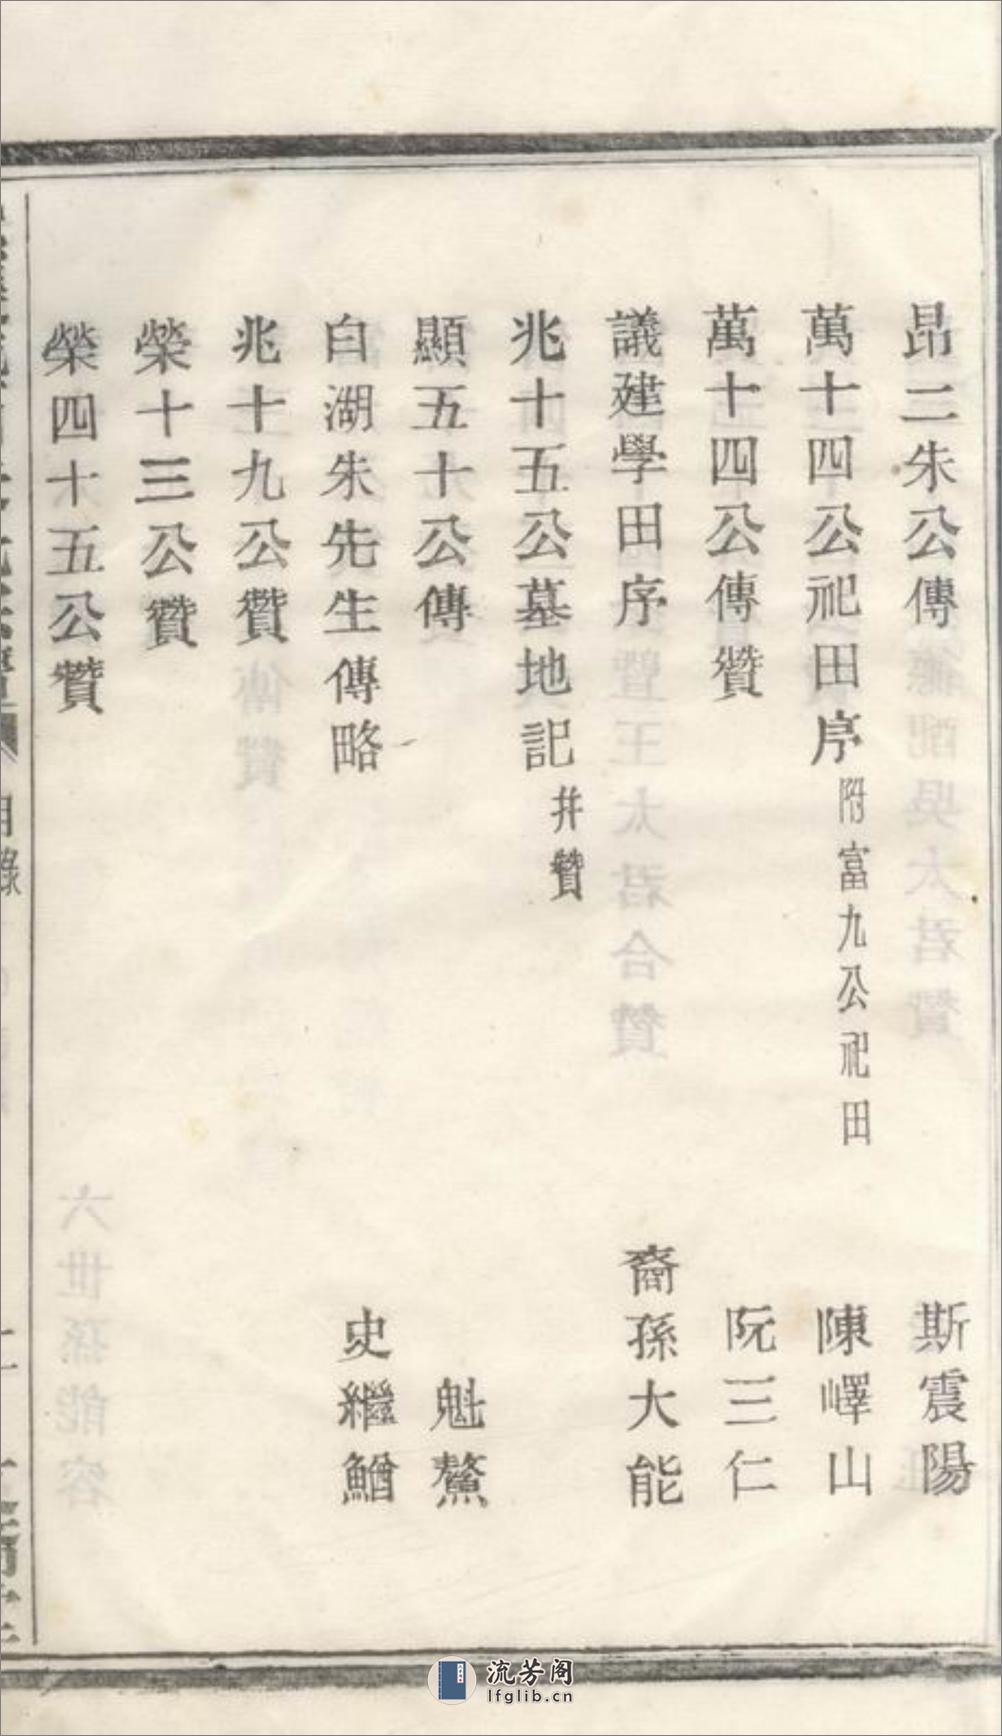 昂二朱公傳 斯震陽
萬十四公祀田序 附富九公祀田 陳嶧山
萬十四公傳贊 阮三仁
議建學田序 裔孫大能
兆十五公墓地記 并贊
顯五十公傳 魁鰲
白湖朱先生傳略 史繼鰌
兆十九公贊
榮十三公贊
榮四十五公贊
目錄
流芳阁
lfglib.cn